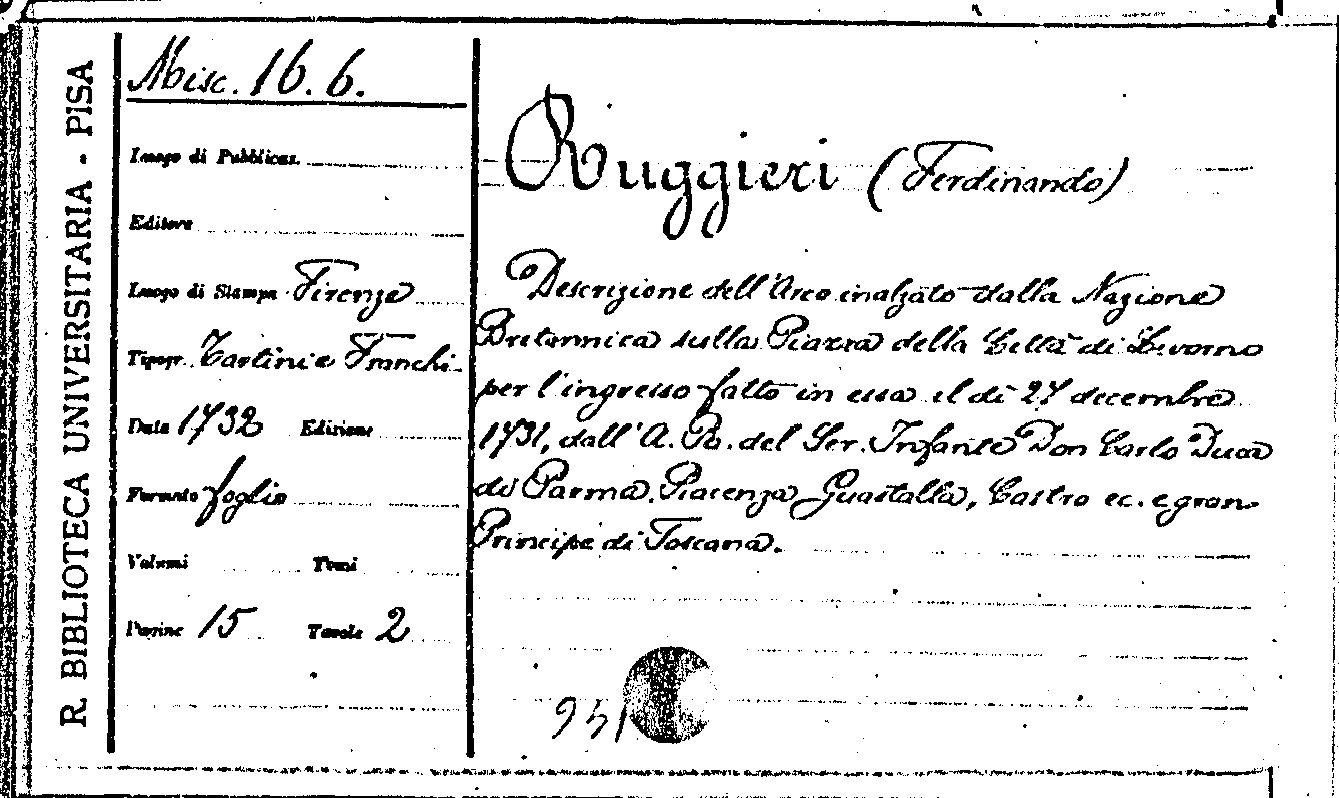 R. BIBLIOTECA UNIVERSITARIA - PISA
Misc. 16. 6.
Luogo di Pubblicaz.
Editore
Luogo di Stampa Firenze
Tipogr. Tartini e Franchi
Data 1732 Edizione
Formato foglio
Volumi Tomi
Pagine 15 Tavole 2
Ruggieri (Ferdinando)
Descrizione dell'Arco inalzato dalla Nazione
Britannica sulla Piazza della Città di Livorno
per l'ingresso fatto in essa il dì 27 decembre
1731, dall'A. R. del Ser. Infante Don Carlo Duca
di Parma, Piacenza, Guastalla, Castro ec. e gran
Principe di Toscana.